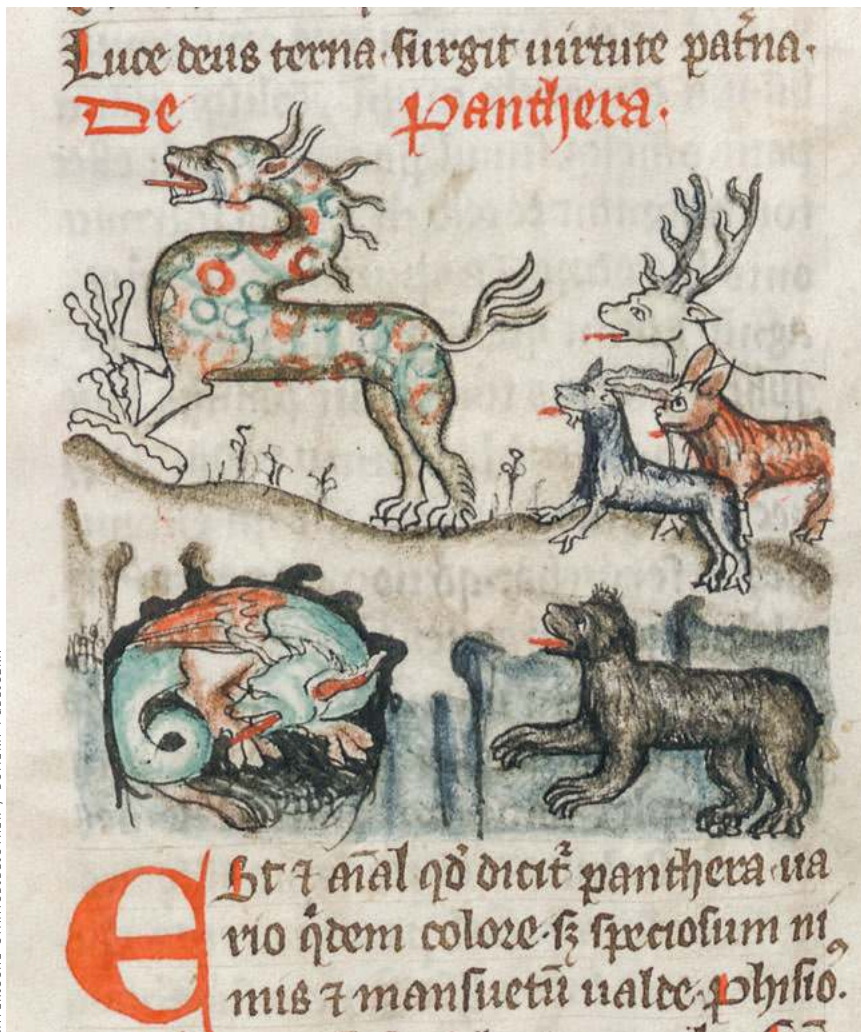 Luce deus terna surgit uirtute pat̄na.
De Panthera.
Est ⁊ aīal qd̄ dicit᷑ panthera ua
rio qͥdem colore sꝫ speciosum ni
mis ⁊ mansuetū ualde phisio.